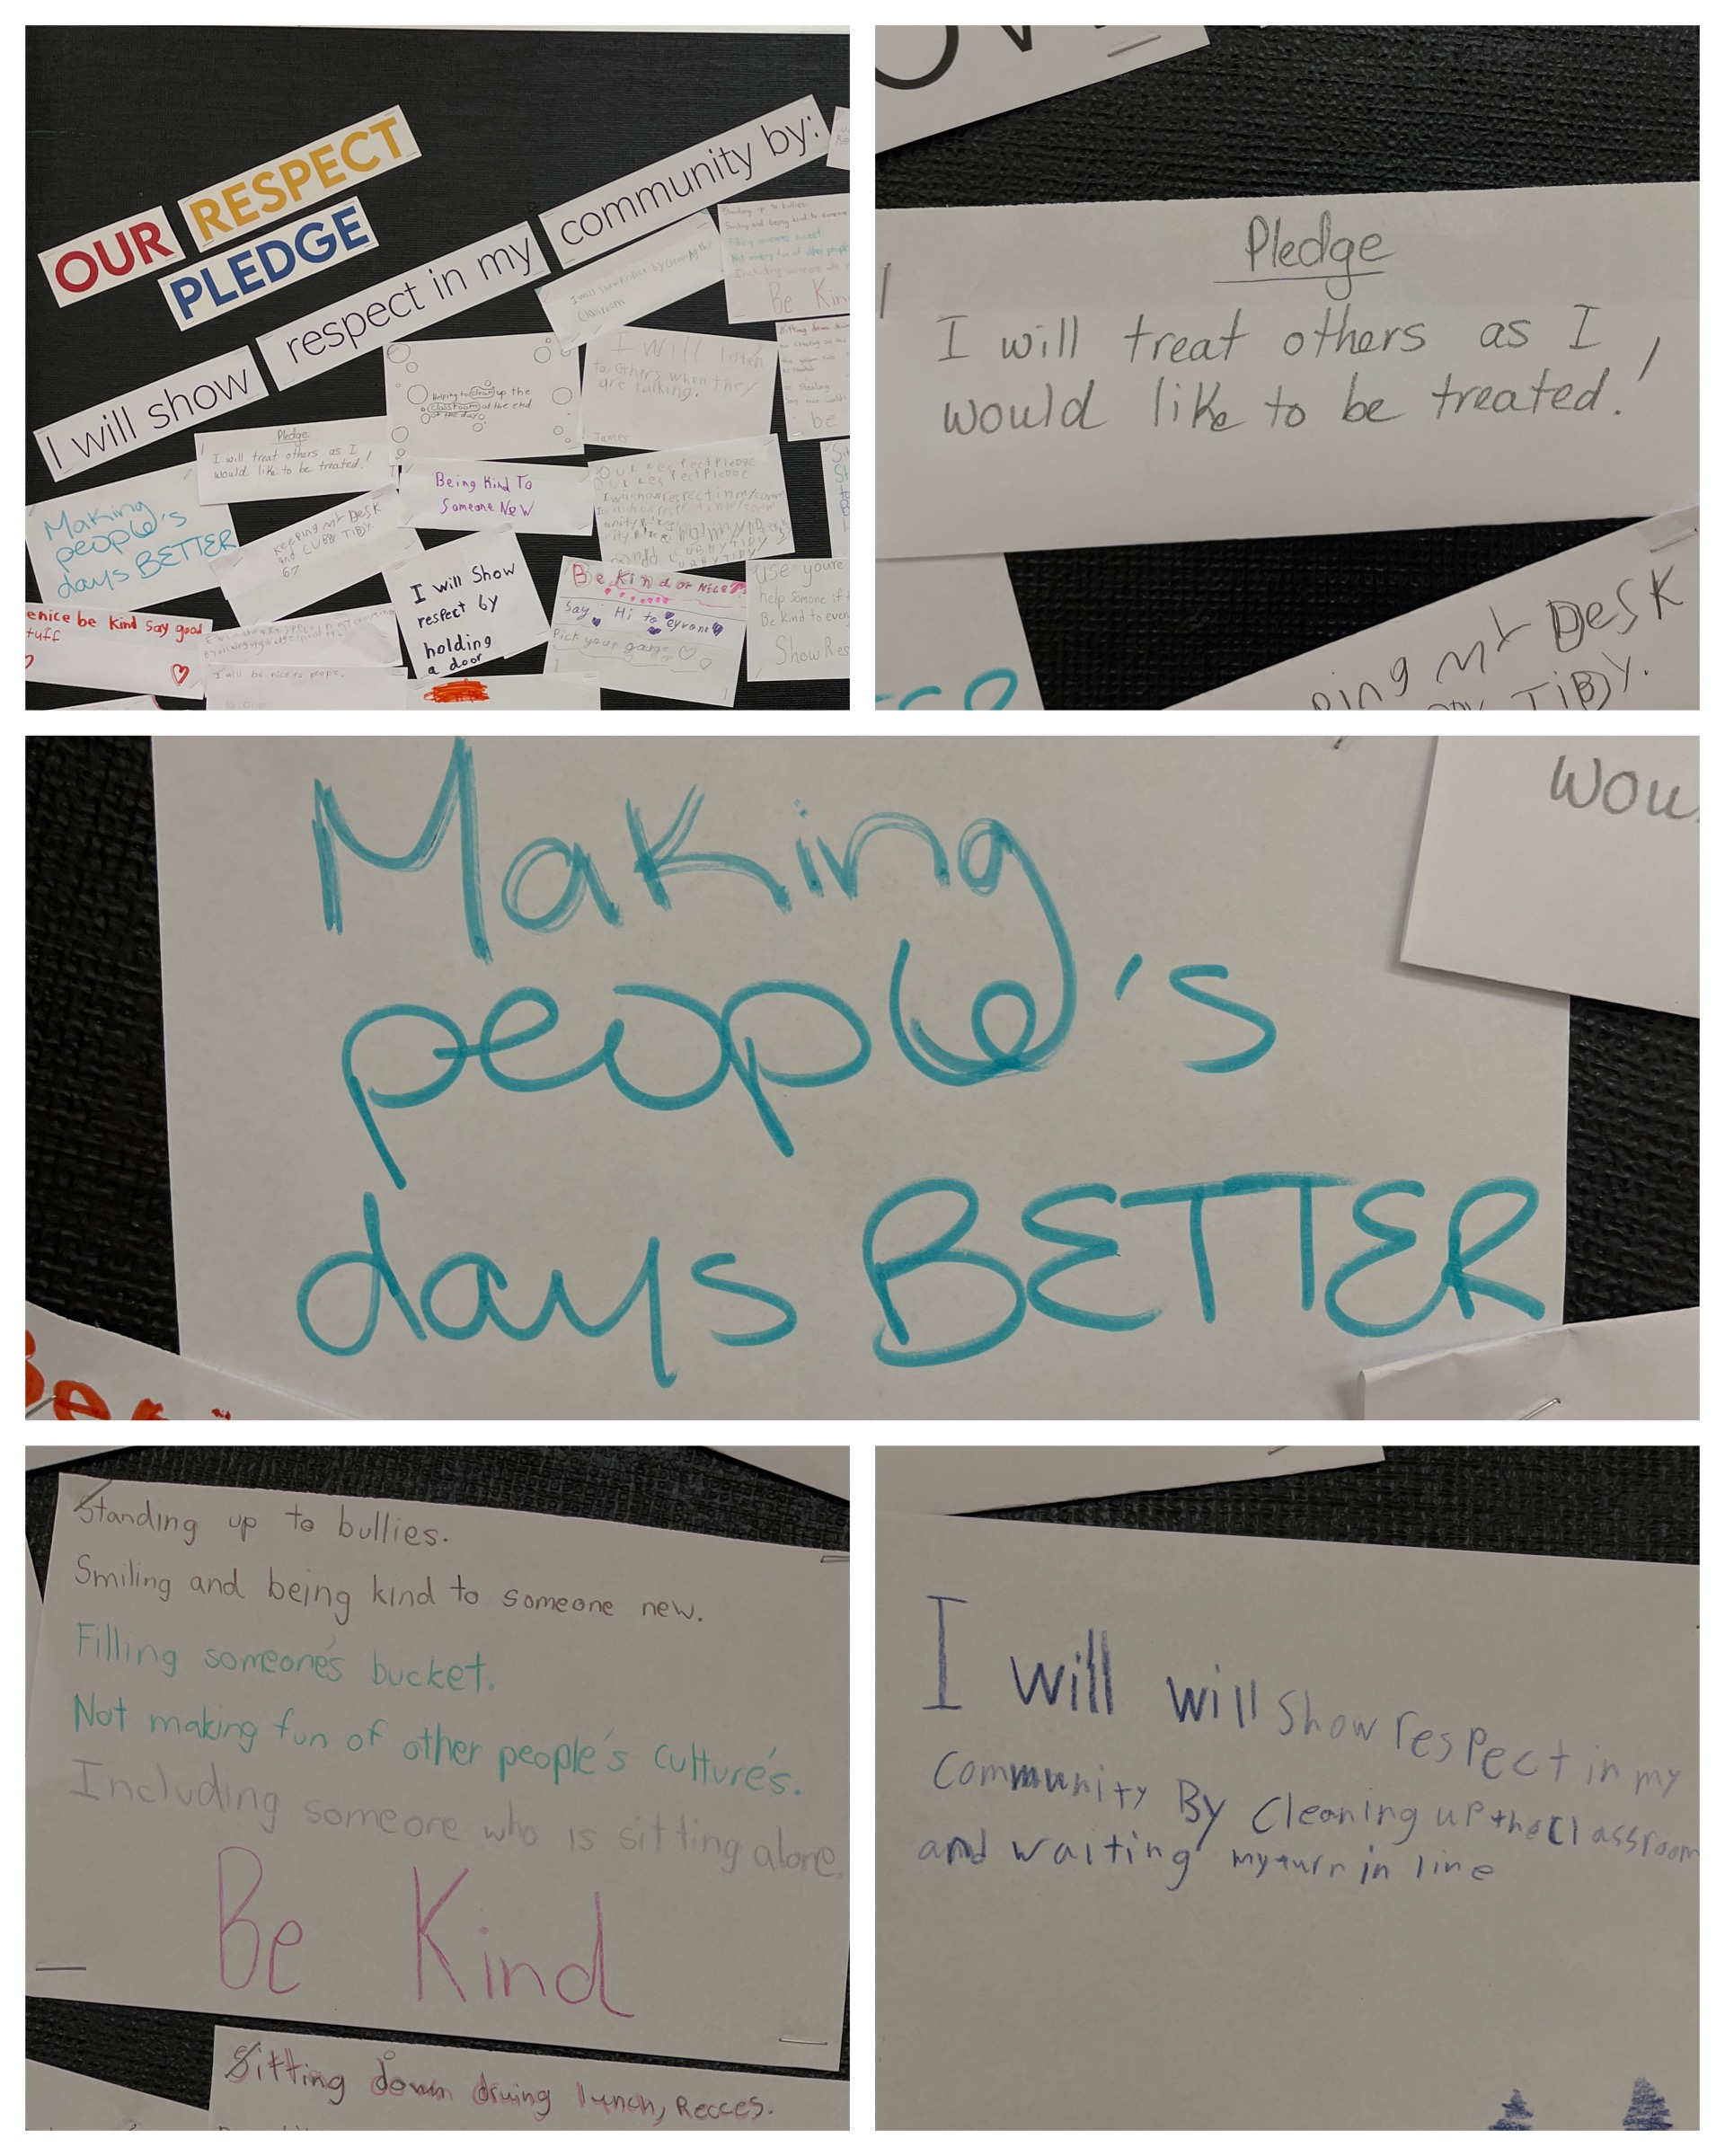 OUR RESPECT
PLEDGE
I will show respect in my community by:
Standing up to bullies.
Smiling and being kind to someone
Filling someone's bucket.
Not making fun of other people
Including someone who
Be Kin
I will show by cleaning the
classroom
Helping to clean up the
classroom at the end
of the day
I will listen
To others when they
are talking.
James
Pledge
I will treat others as I
would like to be treated!
Being Kind To
Someone New
Making
people's
days BETTER
Keeping my DESK
and CUBBY TIDY.
67
I will Show
respect by
holding
a door
Be Kind or Nice
Say Hi to
Pick your
use youre
help Somone if
Be kind to ever
Show Res
enice be kind say good
tuff
I will be nice to
be
Pledge
I will treat others as I
would like to be treated!
ping my DESK
TiBDy.
Making
people's
days BETTER
Wou
Be
Standing up to bullies.
Smiling and being kind to someone new.
Filling someone's bucket.
Not making fun of other people's culture's.
Including someone who is sitting alone.
Be Kind
Sitting down druing lunch, Recces.
I will will show respect in my
community By cleaning up the classroom
and waiting my turn in line